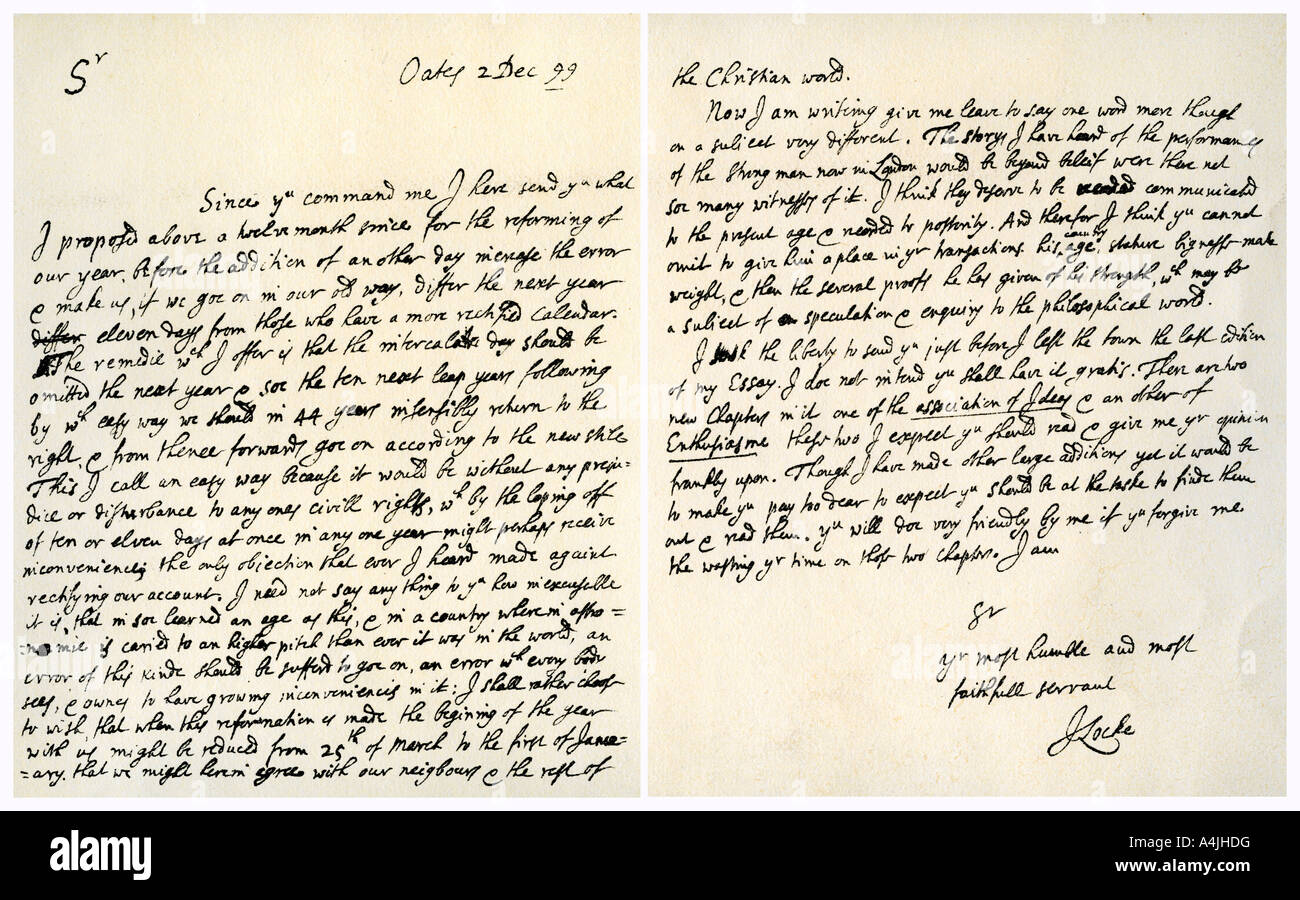 Sr
Oates 2 Dec 99
Since yu command me I here send yu what
I proposed above a twelve month since for the reforming of
our year, before the addition of another day increase the error
& make us, if we goe on in our old way, differ the next year
differ eleven days from those who have a more rectified Calendar.
The remedie wch I offer is that the intercalar day should be
omitted the next year & soe the ten next leap years following
by wch easy way we should in 44 years insensibly return to the
right, & from thence forwards goe on according to the new stile
This I call an easy way because it would be without any preju=
dice or disturbance to any ones civill rights, wch by the loping off
of ten or eleven days at once in any one year might perhaps receive
inconvenience, the only objection that ever I heard made against
rectifying our account. I need not say any thing to yu how inexcusable
it is, that in soe learned an age as this, & in a country wherein astro=
=nomie is caried to an higher pitch than ever it was in the world, an
error of this kinde should be sufferd to goe on, an error wch every body
sees, & ownes to have growing inconveniencies in it: I shall rather choose
to wish, that when this reformation is made the begining of the year
with us might be reduced from 25th of March to the first of Janu=
=ary. that we might herein agree with our neighbours & the rest of
the Christian world.
Now I am writing give me leave to say one word more though
on a subject very different. The storys I have heard of the performances
of the strong man now in London would be beyond beleif were there not
soe many witnesses of it. I think they deserve to be communicated
to the present age & recorded to posterity. And therefor I think yu cannot
omit to give him a place in yr transactions. his country age, stature bigness make
weight, & then the several proofs he has given of his strength, wch may be
a subject of speculation & enquiry to the philosophical world.
I took the liberty to send yu just before I left the town the last edition
of my Essay. I doe not intend yu shall have it gratis. There are two
new Chapters in it one of the association of Ideas & an other of
Enthusiasme these two I expect yu should read & give me yr opinion
frankly upon. Though I have made other large additions yet it would be
to make yu pay too dear to expect yu should be at the taske to finde them
out & read them. yu will doe very friendly by me if yu forgive me
the wasting yr time on those two chapters. I am
Sr
yr most humble and most
faithfull servant
J Locke
alamy
Image ID: A4JHDG
www.alamy.com